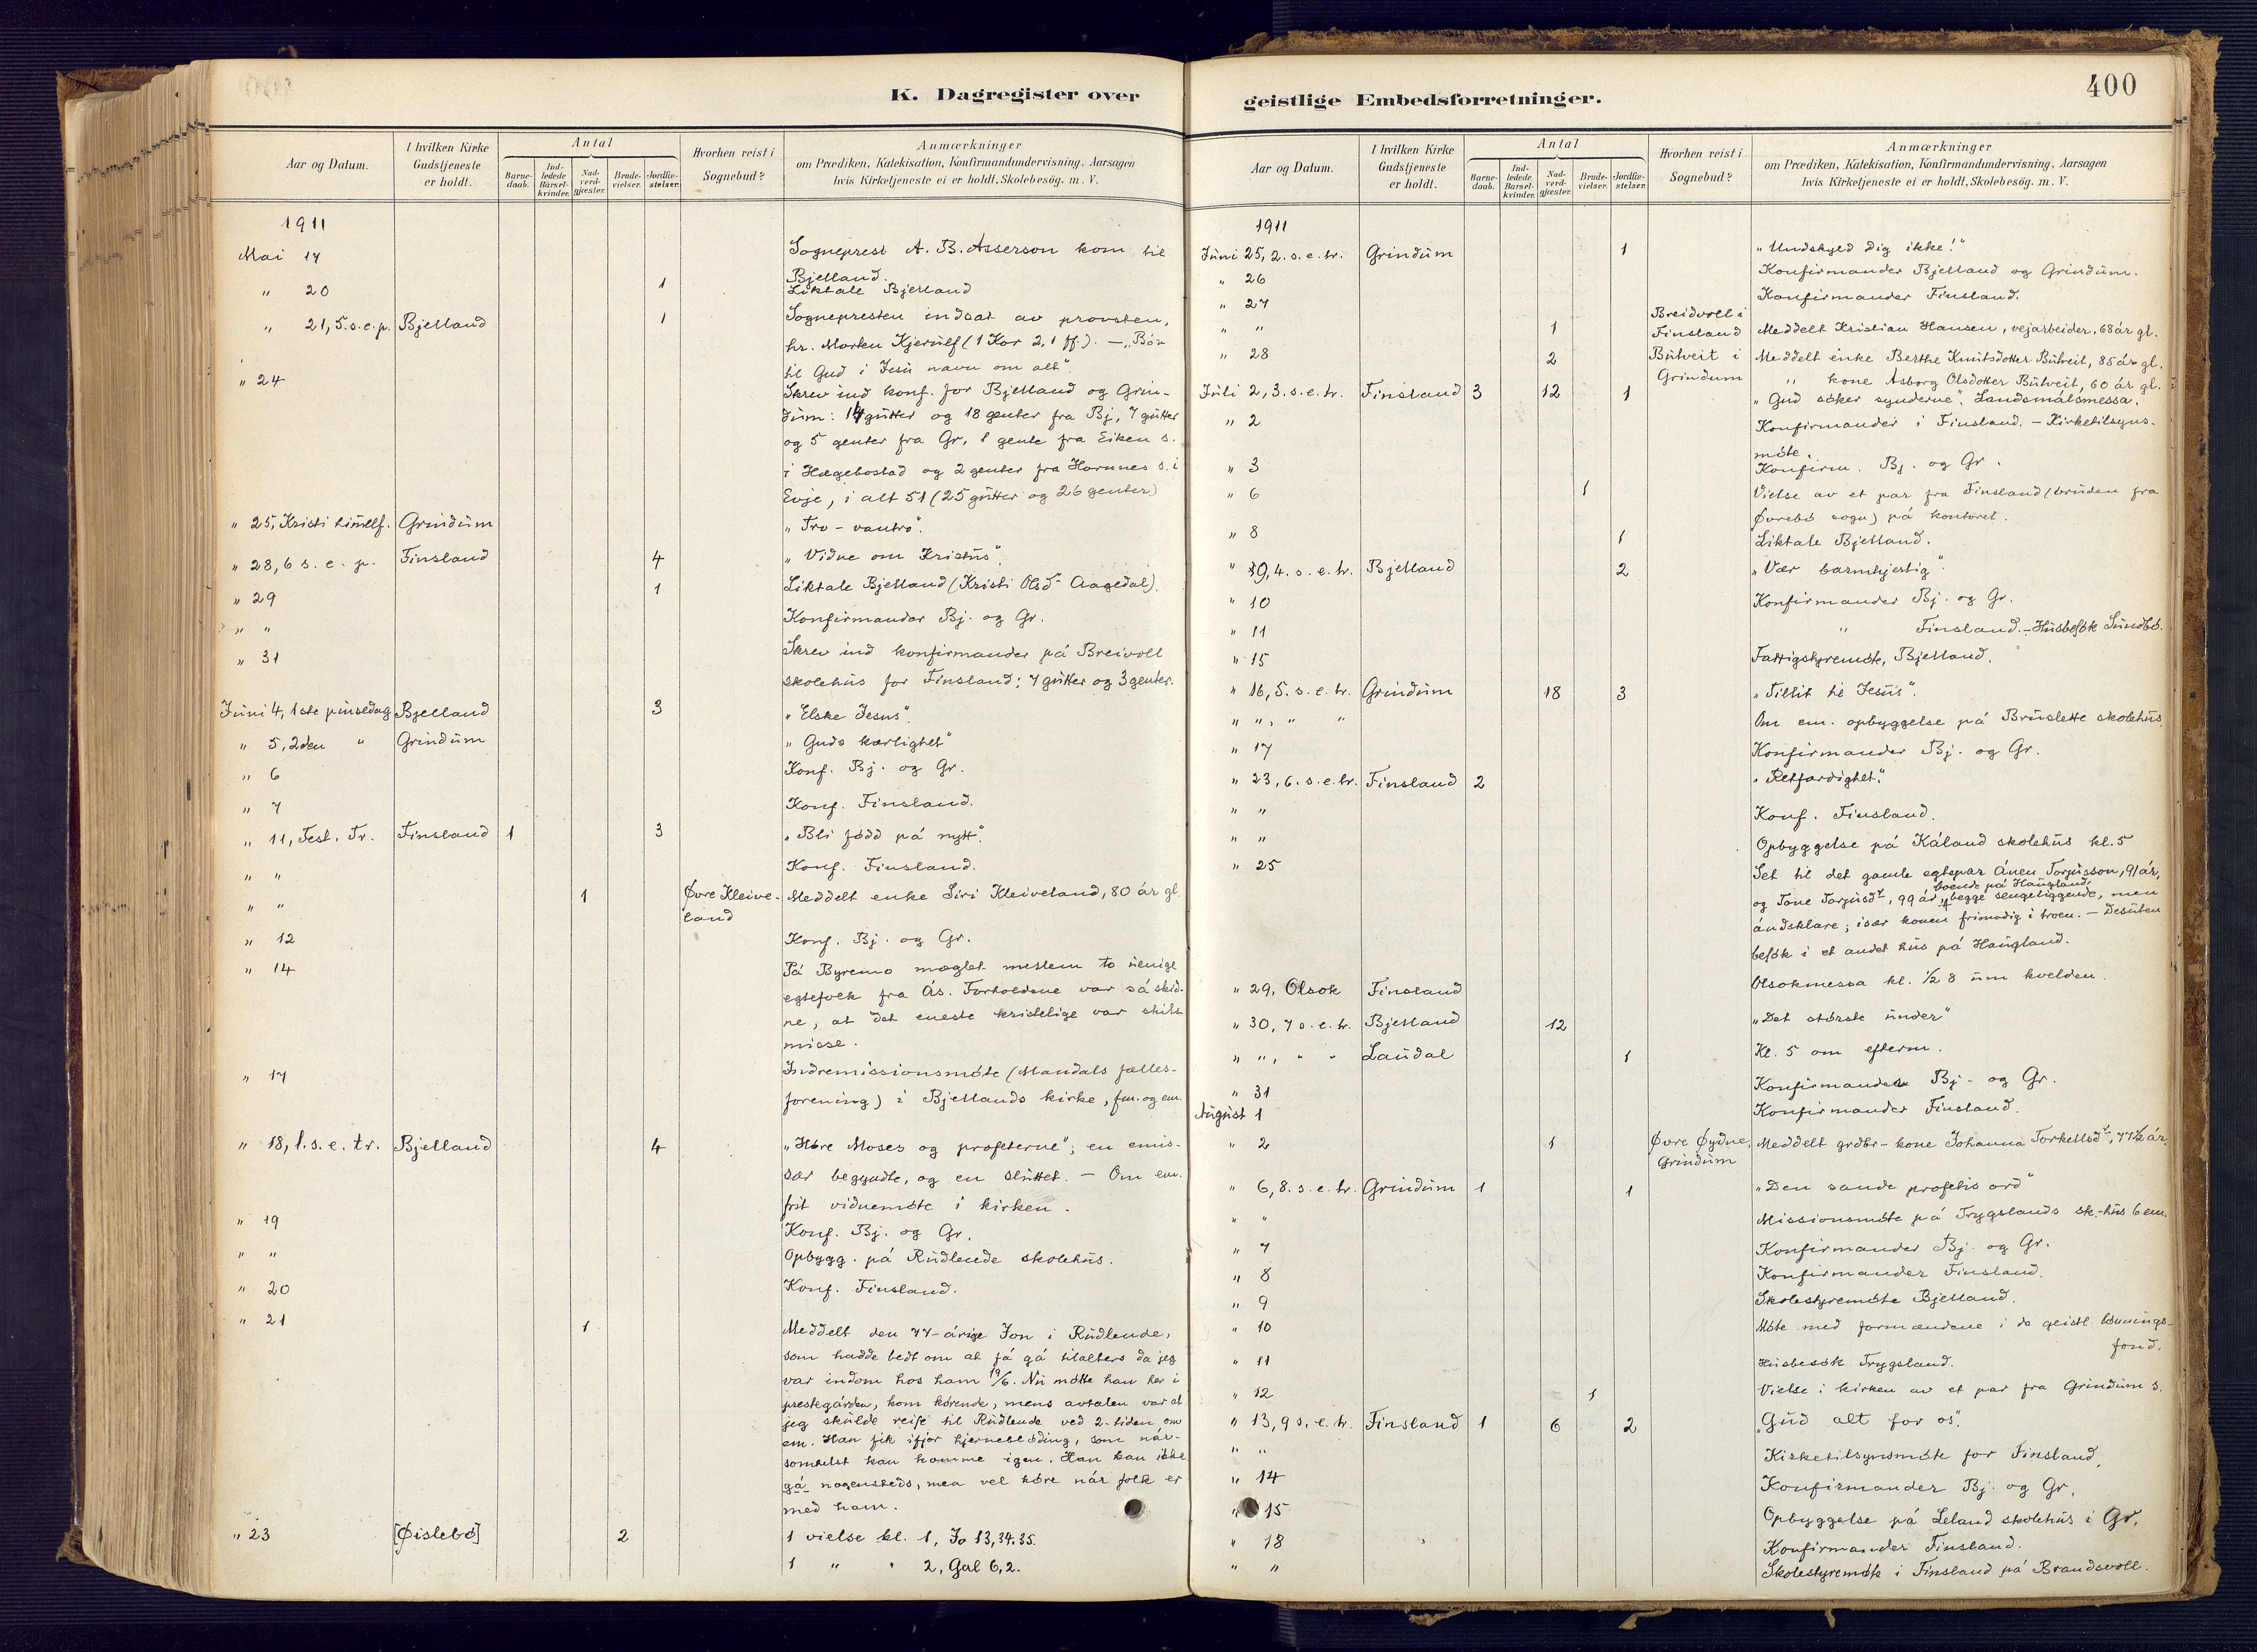 K. Dagregister over
Aar og Datum.
I hvilken Kirke
Gudstjeneste
er holdt.
Antal
Barne-
daab.
Ind-
ledede
Barsel-
kvinder.
Nad-
verd-
gjæster.
Brude-
vielser.
Jordfæ-
stelser.
Hvorhen reist i
Sognebud?
Anmærkninger
om Prædiken, Katekisation, Konfirmandundervisning, Aarsagen
hvis Kirketjeneste ei er holdt, Skolebesög. m. V.
1911
Mai 17 Sogneprest A. B. Asserson kom til
Bjelland.
" 20 1 Liktale Bjelland
" 21, 5. s. e. p. Bjelland 1 Sognepresten indsat av provsten,
hr. Morten Kjerulf (1 Kor 2, 1 ff). — „Bøn
til Gud i Jesu navn om alt".
" 24 Skrev ind konf. for Bjelland og Grin-
dum: 14 gutter og 18 genter fra Bj, 7 gutter
og 5 genter fra Gr, 1 gente fra Eiken s.
i Hægebostad og 2 genter fra Hornnes s. i
Evje, i alt 51 (25 gutter og 26 genter)
" 25, Kristi himelf. Grindum „Tro - vantro".
" 28, 6 s. e. p. Finsland 4 „Vidne om Kristus".
" 29 1 Liktale Bjelland (Kristi Olsd. Aagedal).
" " Konfirmander Bj. og Gr.
" 31 Skrev ind konfirmander på Breivoll
skolehus for Finsland; 7 gutter og 3 genter.
Juni 4, 1ste pinsedag Bjelland 3 „Elske Jesus".
" 5, 2den " Grindum „Guds kærlighet"
" 6 Konf. Bj. og Gr.
" 7 Konf. Finsland.
" 11, Fest. Tr. Finsland 1 3 „Bli fødd på nytt".
" " Konf. Finsland.
" " 1 Øvre Kleive- Meddelt enke Siri Kleiveland, 80 år gl.
land
" 12 Konf. Bj. og Gr.
" 14 På Byremo mæglet mellem to uenige
egtefolk fra Ås. Forholdene var så skid-
ne, at det eneste kristelige var skils-
misse.
" 17 Indremissionsmøte (Mandals fælles-
forening) i Bjellands kirke, fm. og em.
" 18, 1. s. e. tr. Bjelland 4 „Høre Moses og profeterne"; en emis-
sær begyndte, og en sluttet. — Om em.
frit vidnemøte i kirken.
" 19 Konf. Bj. og Gr.
" " Opbygg. på Rudlende skolehus.
" 20 Konf. Finsland.
" 21 1 Meddelt den 77-årige Jon i Rudlende,
som hadde bedt om at få gå tilalters da jeg
var indom hos ham 19/6. Nu møtte han her i
prestegården, kom kørende, mens avtalen var at
jeg skulde reise til Rudlende ved 2-tiden om
em. Han fik ifjor hjerneblødning, som når-
somhelst kan komme igen. Han kan ikke
gå nogensteds, men vel køre når folk er
med ham.
" 23 [Øislebø] 2 1 vielse kl. 1, Jo 13, 34. 35.
1 " " 2, Gal 6, 2.
geistlige Embedsforretninger.
400
Aar og Datum.
I hvilken Kirke
Gudstjeneste
er holdt.
Antal
Barne-
daab.
Ind-
ledede
Barsel-
kvinder.
Nad-
verd-
gjæster.
Brude-
vielser.
Jordfæ-
stelser.
Hvorhen reist i
Sognebud?
Anmærkninger
om Prædiken, Katekisation, Konfirmandundervisning, Aarsagen
hvis Kirketjeneste ei er holdt, Skolebesög. m. V.
1911
Juni 25, 2. s. e. tr. Grindum 1 „Undskyld dig ikke!"
" 26 Konfirmander Bjelland og Grindum.
" 27 Konfirmander Finsland.
Breidvoll i
" " 1 Finsland Meddelt Kristian Hansen, vejarbeider, 68 år gl.
" 28 2 Butveit i Meddelt enke Berthe Knutsdotter Butveit, 85 år gl.
Grindum " kone Asborg Olsdotter Butveit, 60 år gl.
Juli 2, 3. s. e. tr. Finsland 3 12 1 „Gud søker synderne". Landsmålsmessa.
" 2 Konfirmander i Finsland. — Kirketilsyns-
møte.
" 3 Konfirm. Bj. og Gr.
" 6 1 Vielse av et par fra Finsland (bruden fra
Øvrebø sogn) på kontoret.
" 8 1 Liktale Bjelland.
" 9, 4. s. e. tr. Bjelland 2 „Vær barmhjertig".
" 10 Konfirmander Bj. og Gr.
" 11 " Finsland. — Husbesøk Sundbø.
" 15 Fattigstyremøte, Bjelland.
" 16, 5. s. e. tr. Grindum 18 3 „Tillit til Jesus".
" ", " " Om em. opbyggelse på Bruslette skolehus.
" 17 Konfirmander Bj. og Gr.
" 23, 6. s. e. tr. Finsland 2 „Retfærdighet."
" " Konf. Finsland.
" " Opbyggelse på Kåland skolehus kl. 5
" 25 Set til det gamle egtepar Ånen Torjusson, 91 år,
boende på Haugland,
og Tone Torjusd., 99 år, begge sengeliggende, men
åndsklare; især konen frimodig i troen. — Desuten
besøk i et andet hus på Haugland.
" 29, Olsok Finsland Olsokmessa kl. 1/2 8 um kvelden.
" 30, 7 s. e. tr. Bjelland 12 „Det største under"
" ", " " Laudal 1 Kl. 5 om efterm.
" 31 Konfirmander Bj. og Gr.
August 1 Konfirmander Finsland.
" 2 1 Øvre Øydne, Meddelt grdbr-kone Johanna Torkellsd., 77 1/2 år.
Grindum
" 6, 8. s. e. tr. Grindum 1 1 „Den sande profetis ord"
" " Missionsmøte på Trygslands sk.-hus 6 em.
" 7 Konfirmander Bj. og Gr.
" 8 Konfirmander Finsland.
" 9 Skolestyremøte Bjelland.
" 10 Møte med formændene i de geistl lønnings-
fond.
" 11 Husbesøk Trygsland.
" 12 1 Vielse i kirken av et par fra Grindum s.
" 13, 9 s. e. tr. Finsland 1 6 2 „Gud alt for os".
" " Kirketilsynsmøte for Finsland.
" 14 Konfirmander Bj. og Gr.
" 15 Opbyggelse på Leland skolehus i Gr.
" 18 Konfirmander Finsland.
" " Skolestyremøte i Finsland på Brandsvoll.